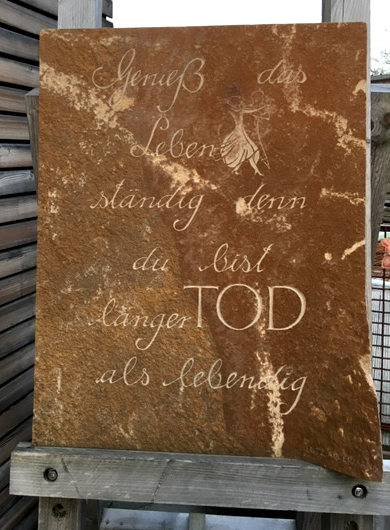 Genieß das
Leben
ständig denn
du bist
länger TOD
als lebendig